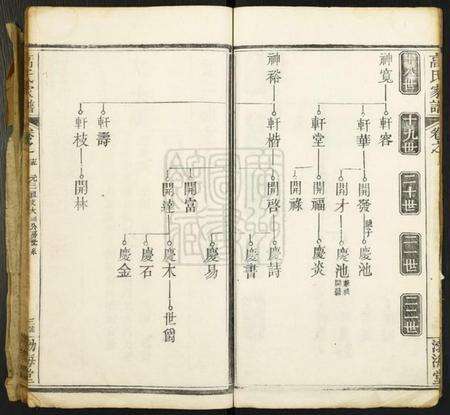 高氏家譜
卷之
渤海堂
十八世
十九世
二十世
二一世
二二世
神寬
軒容
軒華
開發
繼子
慶池
開才
慶池
軒堂
開福
慶炎
開祿
神裕
軒楷
開啓
慶詩
慶書
開富
慶易
開達
慶木
世簡
慶石
慶金
軒壽
軒枝
開林
高氏家譜
卷之
渤海堂